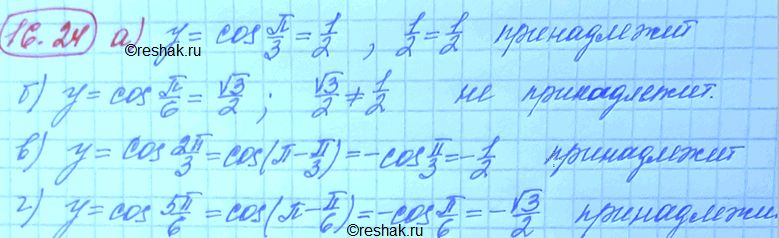 16.24 а) y = cos π/3 = 1/2 , 1/2 = 1/2 принадлежит
©reshak.ru
б) y = cos π/6 = √3/2 ; √3/2 ≠ 1/2 не принадлежит.
в) y = cos 2π/3 = cos(π - π/3) = -cos π/3 = -1/2 принадлежит
г) y = cos 5π/6 = cos(π - π/6) = -cos π/6 = -√3/2 принадлежи
©reshak.ru